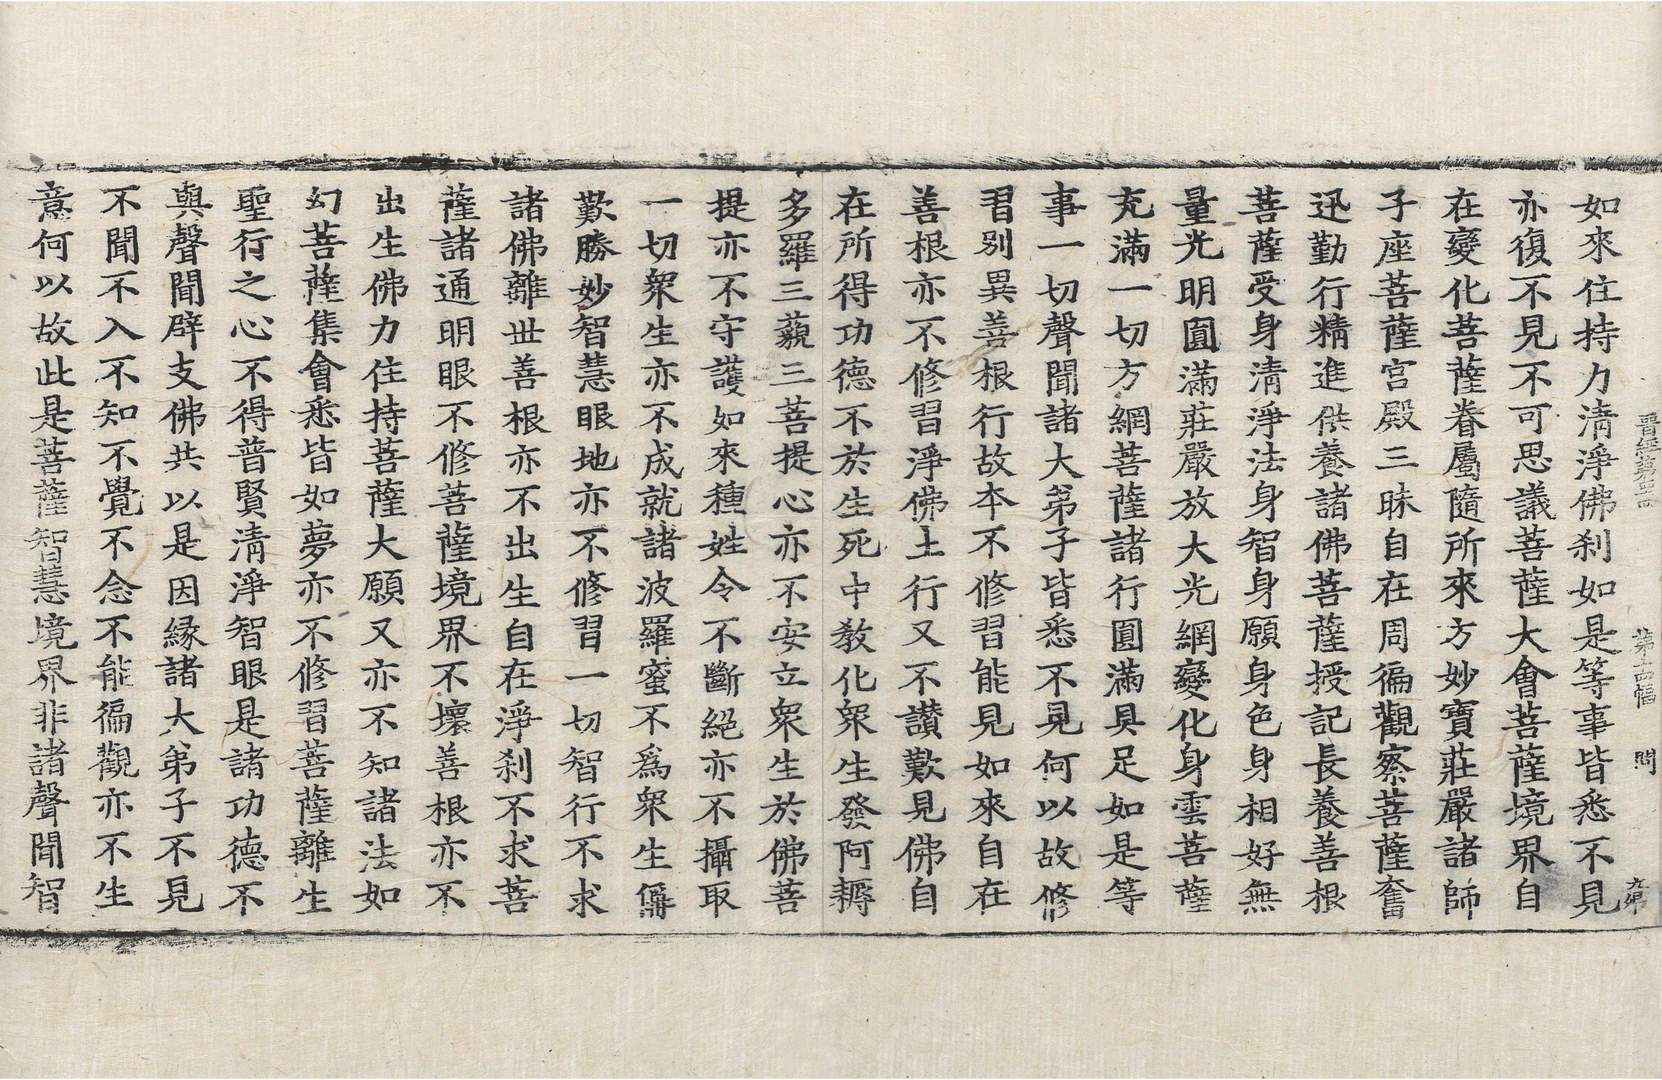 晋經第四十四　第十四幅　問　九弟
如來住持力清淨佛刹如是等事皆悉不見
亦復不見不可思議菩薩大會菩薩境界自
在變化菩薩眷屬隨所來方妙寶莊嚴諸師
子座菩薩宮殿三昧自在周徧觀察菩薩奮
迅勤行精進供養諸佛菩薩授記長養善根
菩薩受身清淨法身智身願身色身相好無
量光明圓滿莊嚴放大光網變化身雲菩薩
充滿一切方網菩薩諸行圓滿具足如是等
事一切聲聞諸大弟子皆悉不見何以故修
習別異善根行故本不修習能見如來自在
善根亦不修習淨佛土行又不讃歎見佛自
在所得功德不於生死中教化衆生發阿耨
多羅三藐三菩提心亦不安立衆生於佛菩
提亦不守護如來種姓令不斷絕亦不攝取
一切衆生亦不成就諸波羅蜜不爲衆生偁
歎勝妙智慧眼地亦不修習一切智行不求
諸佛離世善根亦不出生自在淨刹不求菩
薩諸通明眼不修菩薩境界不壞善根亦不
出生佛力住持菩薩大願又亦不知諸法如
幻菩薩集會悉皆如夢亦不修習菩薩離生
聖行之心不得普賢清淨智眼是諸功德不
與聲聞辟支佛共以是因緣諸大弟子不見
不聞不入不知不覺不念不能徧觀亦不生
意何以故此是菩薩智慧境界非諸聲聞智